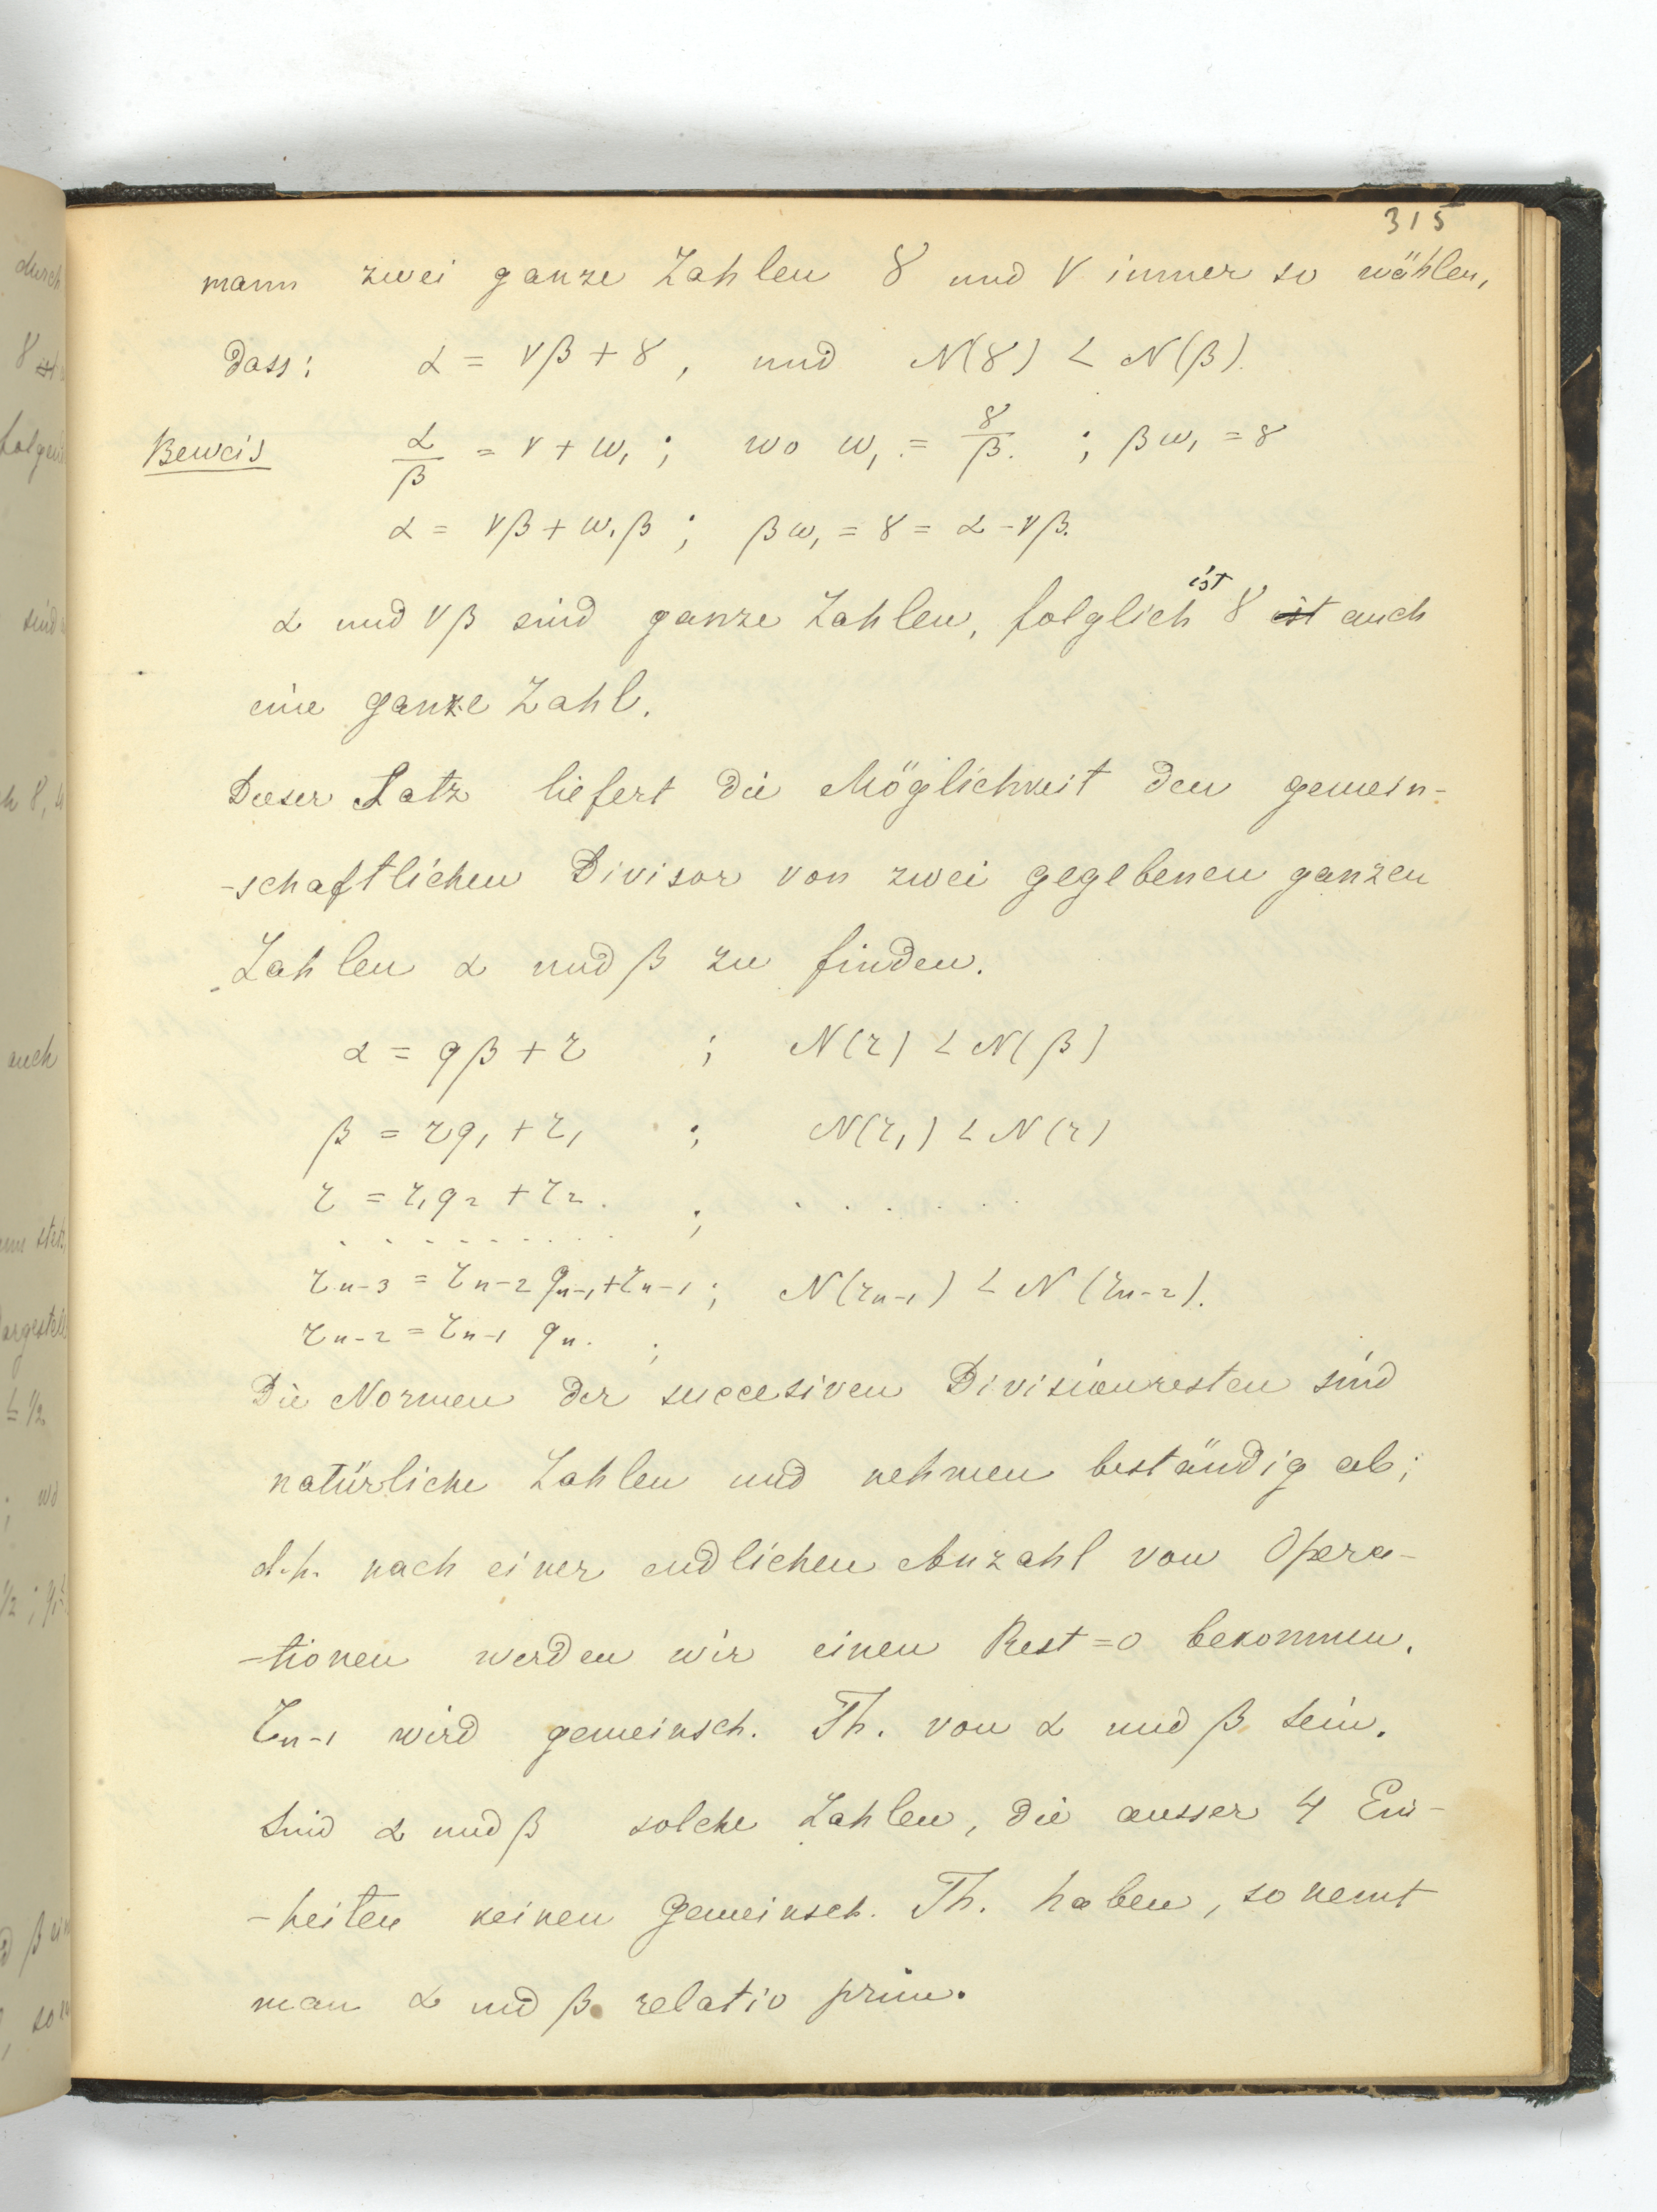 315
mann zwei ganze Zahlen γ und ν immer so wählen,
dass: α = νβ + γ, und N(γ) < N(β).
Beweis α/β = ν + ω₁; wo ω₁ = γ/β. ; βω₁ = γ
α = νβ + ω₁β ; βω₁ = γ = α - νβ.
α und νβ sind ganze Zahlen, folglich ist γ ist auch
eine ganze Zahl.
Dieser Satz liefert die Möglichkeit den gemein-
-schaftlichen Divisor von zwei gegebenen ganzen
Zahlen α und β zu finden.
α = qβ + r ; N(r) < N(β)
β = rq₁ + r₁ ; N(r₁) < N(r)
r = r₁q₂ + r₂. ; . . . . . .
. . . . . . . . . .
rₙ₋₃ = rₙ₋₂ qₙ₋₁ + rₙ₋₁ ; N(rₙ₋₁) < N(rₙ₋₂).
rₙ₋₂ = rₙ₋₁ qₙ. ;
Die Normen der succesiven Divisionresten sind
natürliche Zahlen und nehmen beständig ab;
d.h. nach einer endlichen Anzahl von Opera-
-tionen werden wir einen Rest = 0 bekommen.
rₙ₋₁ wird gemeinsch. Th. von α und β sein.
Sind α und β solche Zahlen, die ausser 4 Ein-
-heiten keinen gemeinsch. Th. haben, so nennt
man α und β relativ prim.